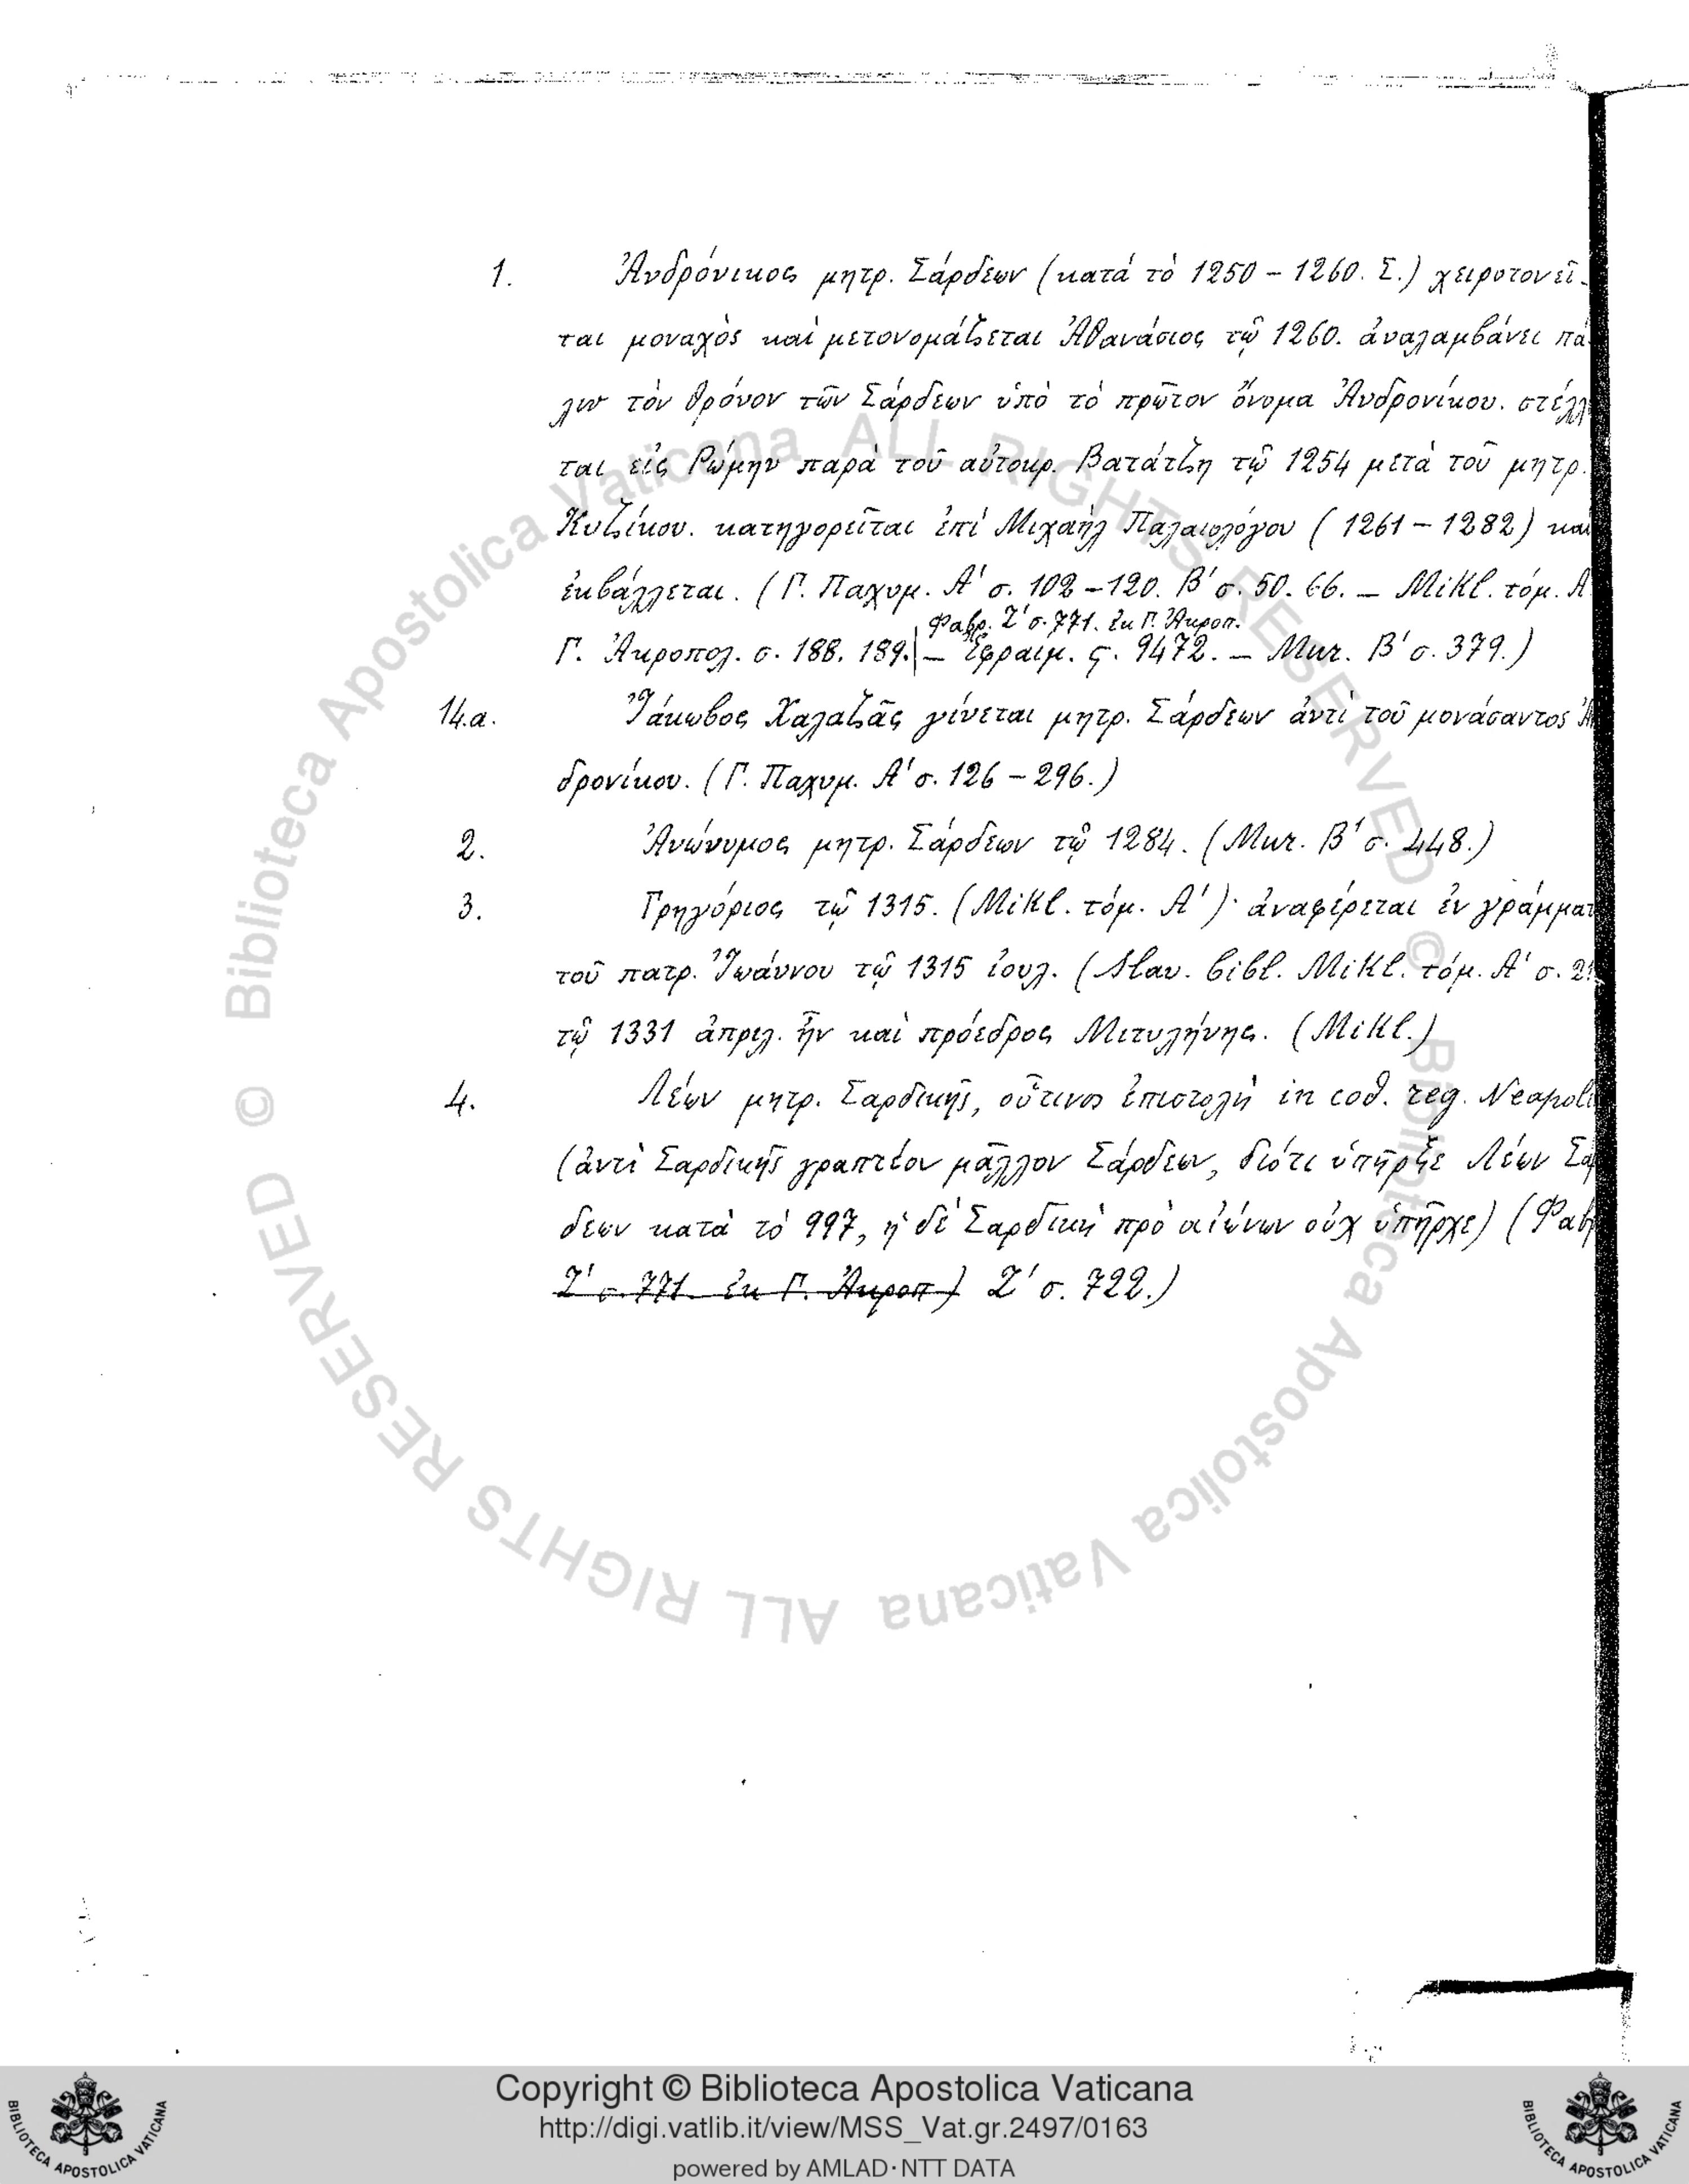 1. Ἀνδρόνικος μητρ. Σάρδεων (κατὰ τὸ 1250 – 1260. Σ.) χειροτονεῖ-
ται μοναχὸς καὶ μετονομάζεται Ἀθανάσιος τῷ 1260. ἀναλαμβάνει πά
λιν τὸν θρόνον τῶν Σάρδεων ὑπὸ τὸ πρῶτον ὄνομα Ἀνδρονίκου. στέλλ
ται εἰς Ρώμην παρὰ τοῦ αὐτοκρ. Βατάτζη τῷ 1254 μετὰ τοῦ μητρ.
Κυζίκου. κατηγορεῖται ἐπὶ Μιχαὴλ Παλαιολόγου (1261 – 1282) και
ἐκβάλλεται. (Γ. Παχυμ. Α' σ. 102 – 120. Β' σ. 50. 66. – Mikl. τόμ. Α
Φαβρ. Ζ' σ. 771. ἐκ Γ. Ἀκροπ.
Γ. Ἀκροπολ. σ. 188. 189. – Ἐφραιμ. ς. 9472. – Μυρ. Β' σ. 379.)
14.α. Ἰάκωβος Χαλαζᾶς γίνεται μητρ. Σάρδεων ἀντὶ τοῦ μονάσαντος Ἀ
δρονίκου. (Γ. Παχυμ. Α' σ. 126 – 296.)
2. Ἀνώνυμος μητρ. Σάρδεων τῷ 1284. (Μυρ. Β' σ. 448.)
3. Γρηγόριος τῷ 1315. (Mikl. τόμ. Α')· ἀναφέρεται ἐν γράμματ
τοῦ πατρ. Ἰωάννου τῷ 1315 ἰουλ. (Slav. bibl. Mikl. τόμ. Α' σ.
τῷ 1331 ἀπριλ. ἦν καὶ πρόεδρος Μιτυλήνης. (Mikl.)
4. Λέων μητρ. Σαρδικῆς, οὗτινος ἐπιστολὴ in cod. reg. Neapoli
(ἀντὶ Σαρδικῆς γραπτέον μᾶλλον Σάρδεων, διότι ὑπῆρξε Λέων Σαρ
δεων κατὰ τὸ 997, ἡ δὲ Σαρδικὴ πρὸ αἰώνων οὐχ ὑπῆρχε) (Φαβρ
Ζ' σ. 771. ἐκ Γ. Ἀκροπ) Ζ' σ. 722.)
© Biblioteca Apostolica Vaticana ALL RIGHTS RESERVED
© Biblioteca Apostolica Vaticana ALL RIGHTS RESERVED
Copyright © Biblioteca Apostolica Vaticana
http://digi.vatlib.it/view/MSS_Vat.gr.2497/0163
powered by AMLAD·NTT DATA
BIBLIOTECA APOSTOLICA VATICANA
BIBLIOTECA APOSTOLICA VATICANA